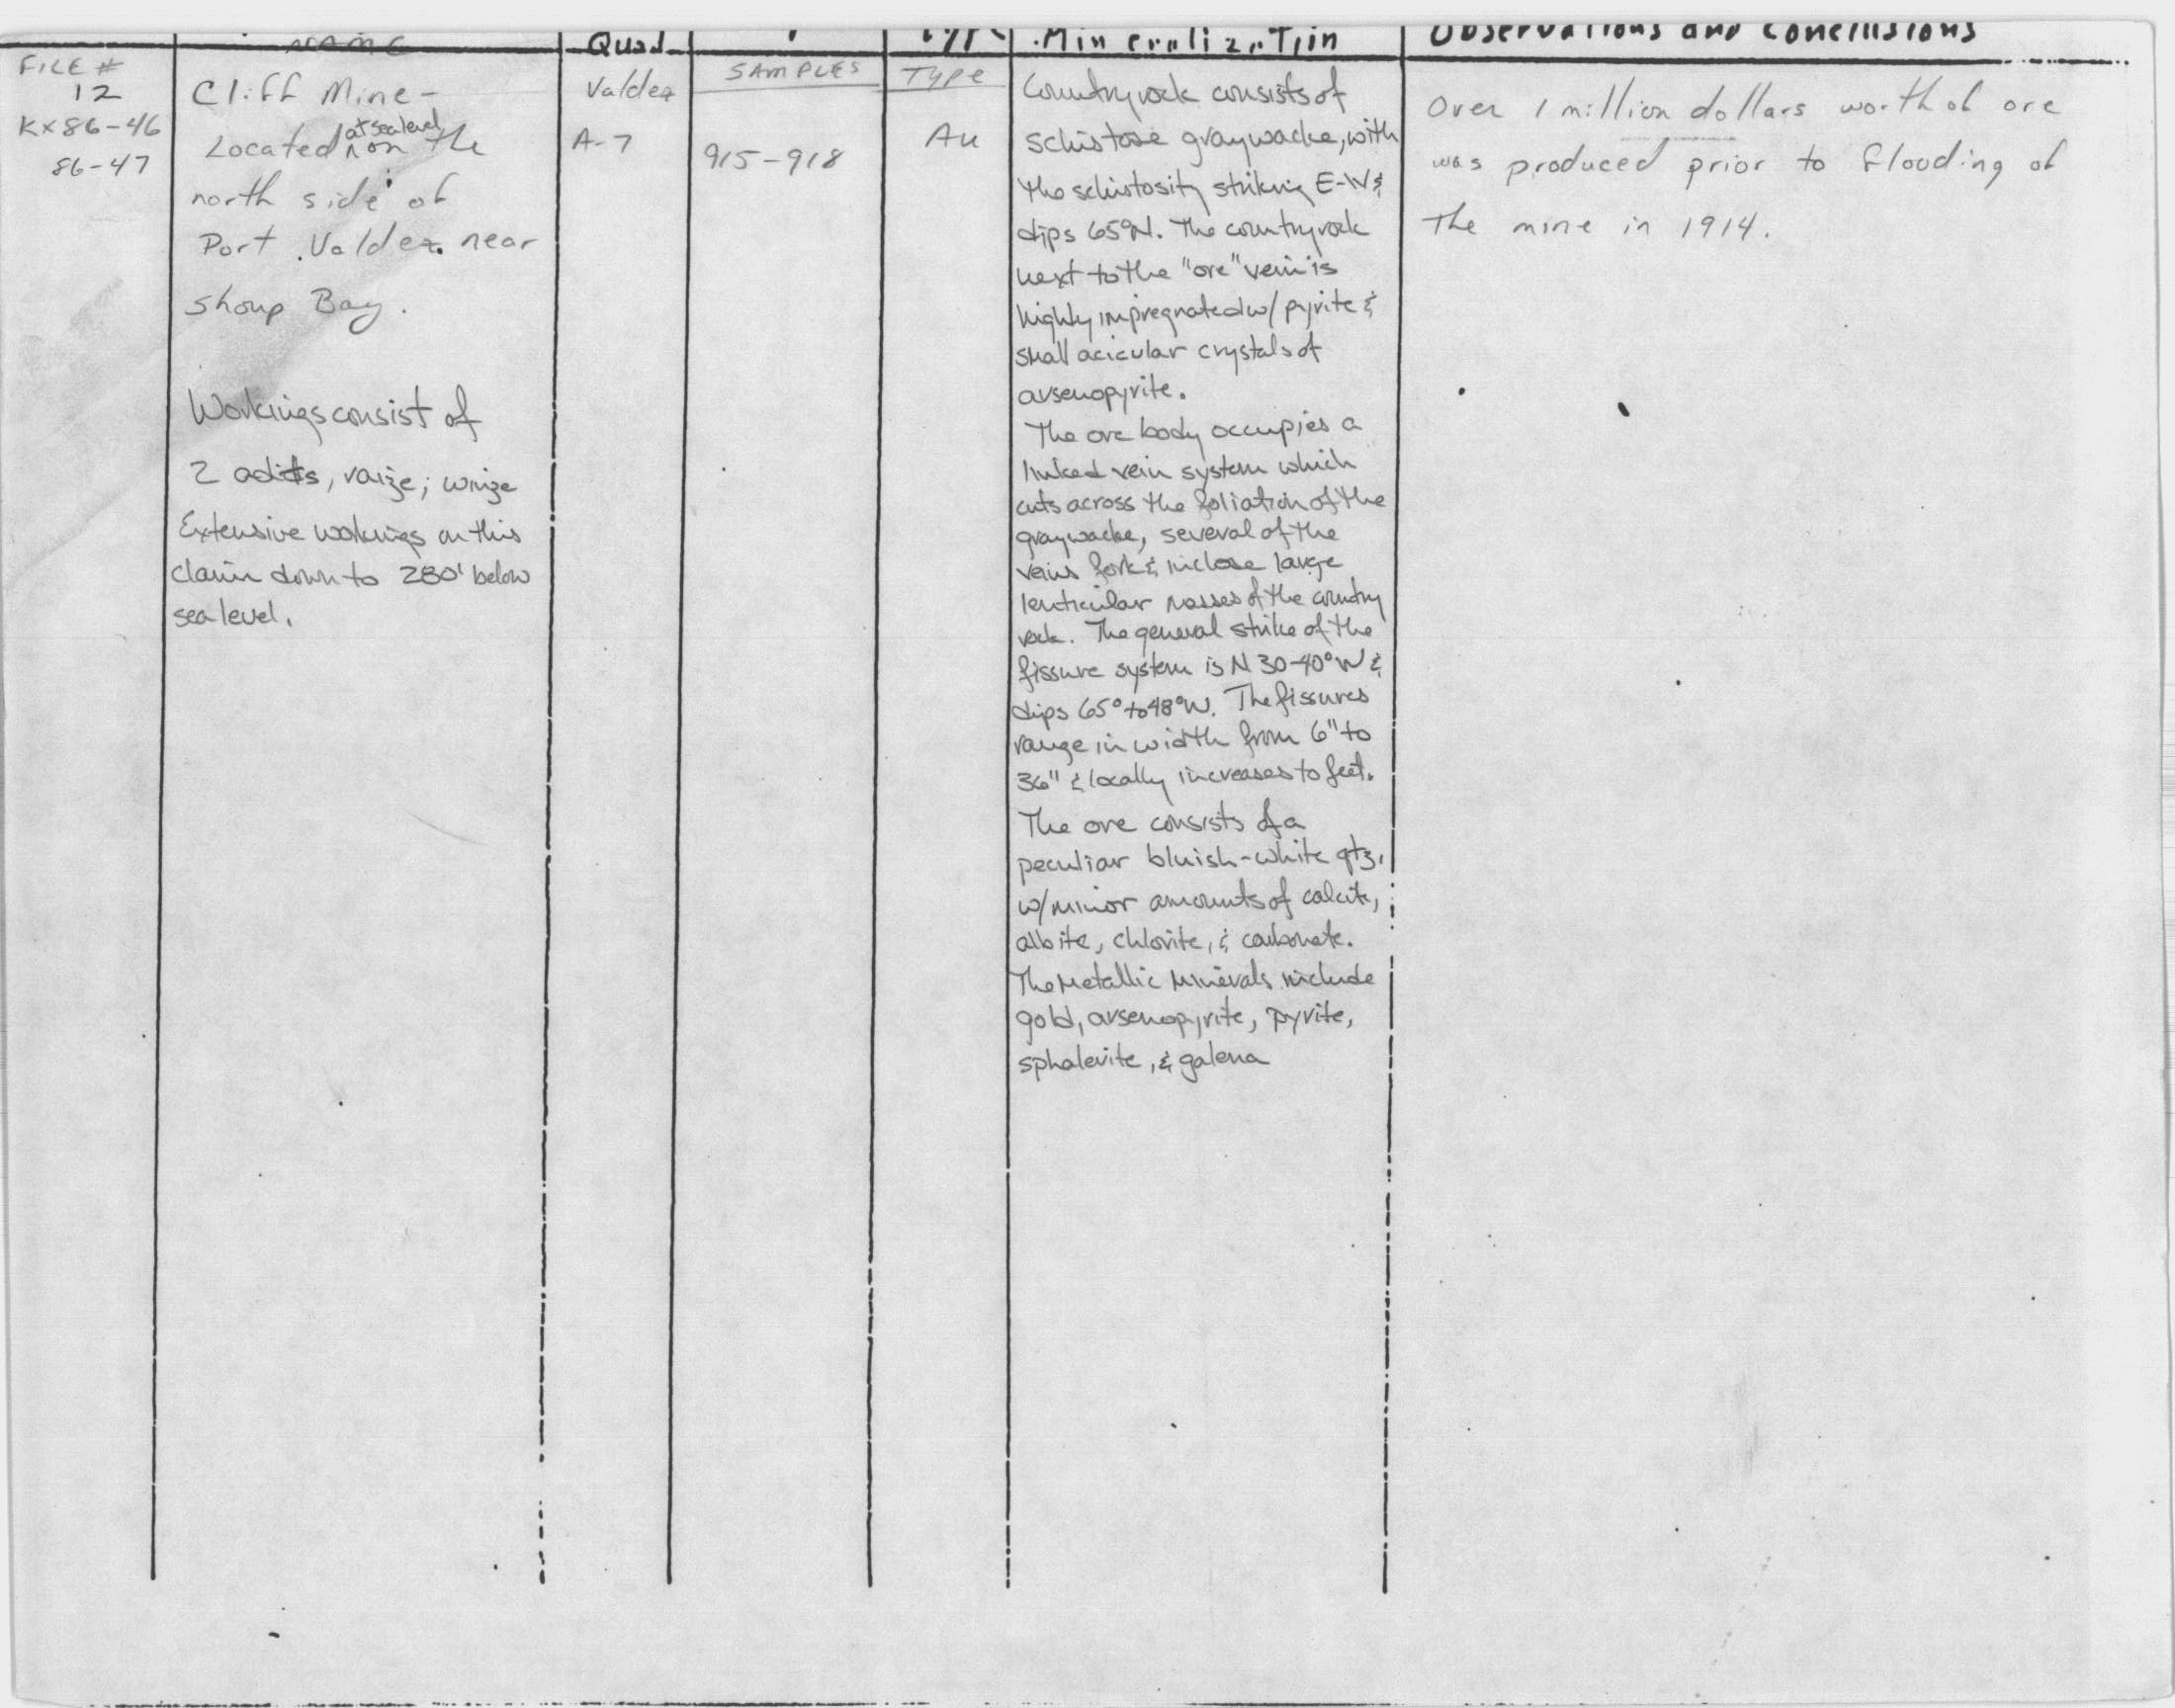 NAME
Quad
Type
Mineralization
Observations and Conclusions
FILE #
12
KX86-46
86-47
Cliff Mine -
at sea level
Located ^ on the
north side of
Port Valdez near
Shoup Bay.
Workings consist of
2 adits, raize; winze
Extensive workings on this
claim down to 280' below
sea level.
Valdez
A-7
SAMPLES
915-918
Type
Au
Countryrock consists of
schistose graywacke, with
the schistosity striking E-W &
dips 65°N. The countryrock
next to the "ore" vein is
highly impregnated w/ pyrite &
small acicular crystals of
arsenopyrite.
The ore body occupies a
linked vein system which
cuts across the foliation of the
graywacke, several of the
veins fork & inclose large
lenticular masses of the country
rock. The general strike of the
fissure system is N 30-40°W &
dips 65° to 48°W. The fissures
range in width from 6" to
36" & locally increases to feet.
The ore consists of a
peculiar bluish-white qtz,
w/minor amounts of calcite,
albite, chlorite, & carbonate.
The metallic minerals include
gold, arsenopyrite, pyrite,
sphalerite, & galena
Over 1 million dollars worth of ore
was produced prior to flooding of
the mine in 1914.